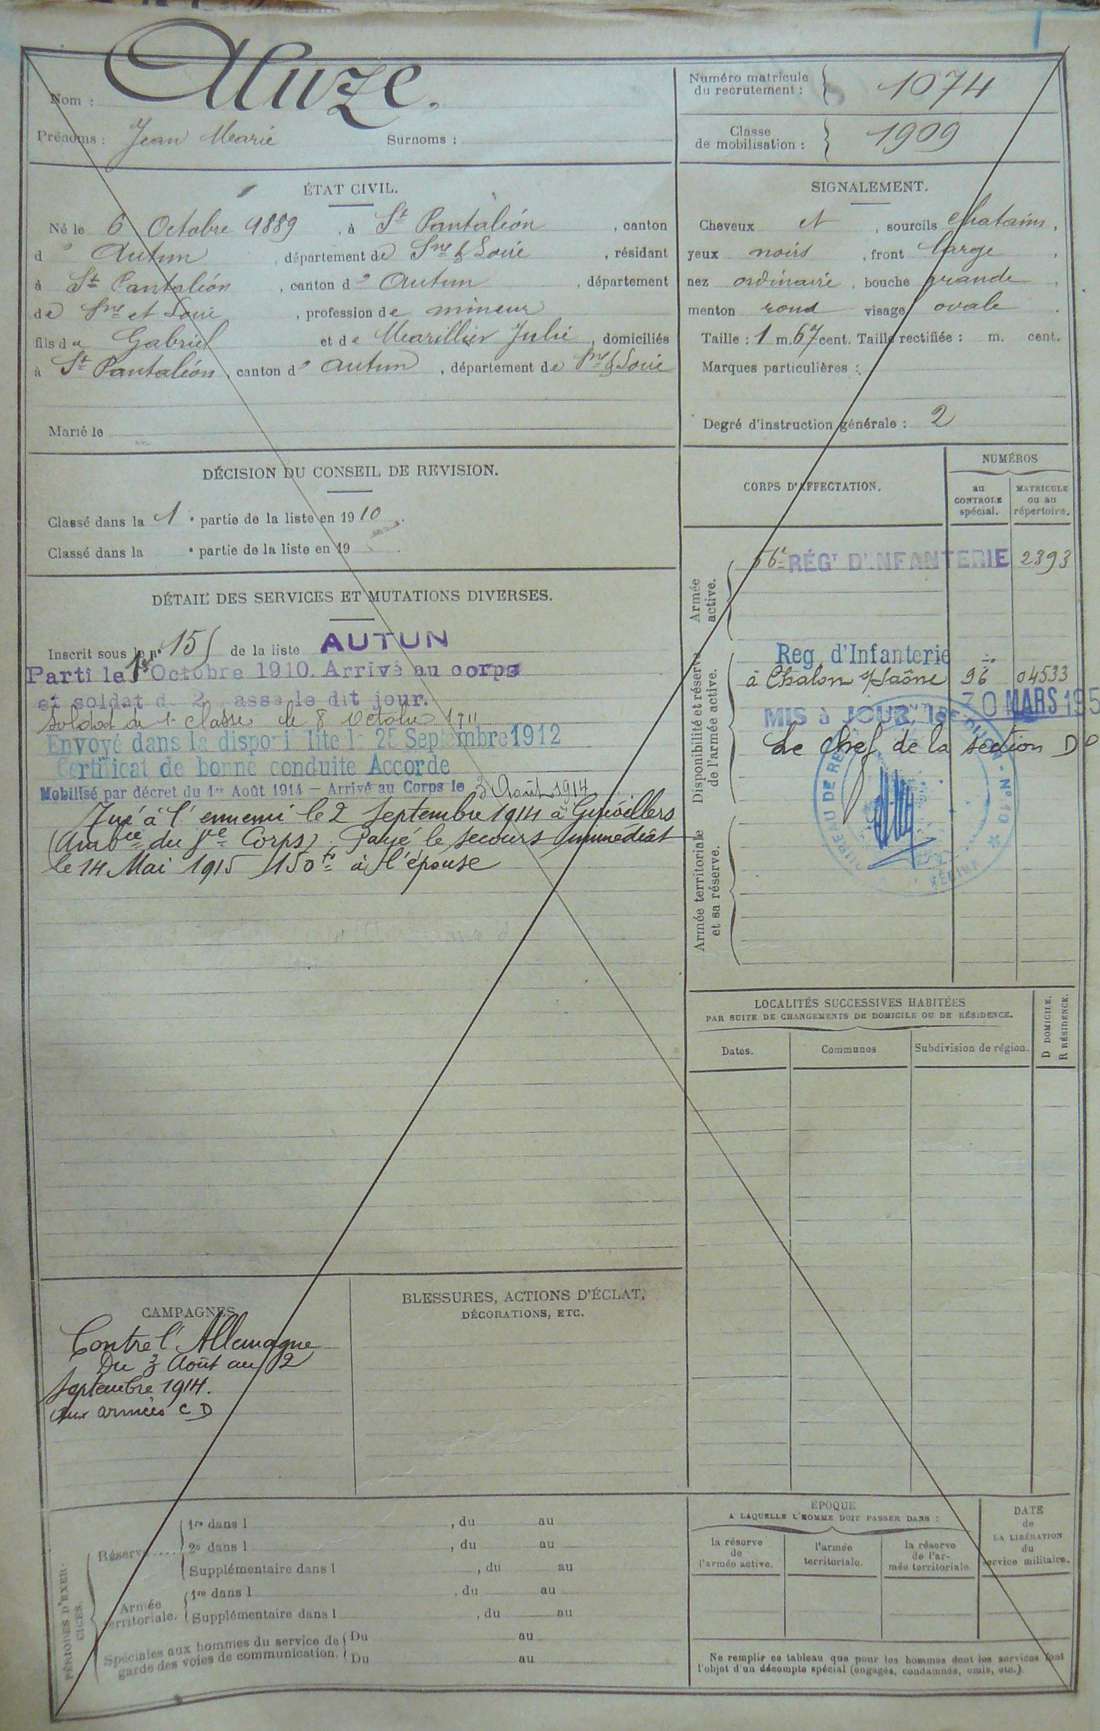 Nom : Auze.
Prénoms : Jean Marie Surnoms :
Numéro matricule
du recrutement : 1074
Classe
de mobilisation : 1909
ÉTAT CIVIL.
Né le 6 Octobre 1889, à St Pantaléon, canton
d' Autun, département de Sne & Loire, résidant
à St Pantaléon, canton d' Autun, département
de Sne et Loire, profession de mineur
fils de Gabriel et de Marillier Julie, domiciliés
à St Pantaléon, canton d' Autun, département de Sne & Loire
Marié le
SIGNALEMENT.
Cheveux et, sourcils chatains,
yeux noirs, front large,
nez ordinaire, bouche grande,
menton rond visage ovale.
Taille : 1 m. 67 cent. Taille rectifiée : m. cent.
Marques particulières :
Degré d'instruction générale : 2
DÉCISION DU CONSEIL DE REVISION.
Classé dans la 1e partie de la liste en 1910.
Classé dans la e partie de la liste en 19
DÉTAIL DES SERVICES ET MUTATIONS DIVERSES.
Inscrit sous le n° 155 de la liste AUTUN
Parti le 1er Octobre 1910. Arrivé au corps
et soldat d 2 asse le dit jour.
Soldat de 1e classe le 8 Octobre 1911
Envoyé dans la disponi lité le 25 Septembre 1912
Certificat de bonne conduite Accordé
Mobilisé par décret du 1er Août 1914 – Arrivé au Corps le 3 Août 1914
Tué à l'ennemi le 2 Septembre 1914 à
(Amb.ce du Corps) Payé le secours immédiat
le 14 Mai 1915 150 frs à l'épouse
CORPS D'AFFECTATION.
NUMÉROS
au
CONTROLE
spécial.
MATRICULE
ou au
répertoire.
Armée
active.
56e RÉGT D'INFANTERIE 2393
Disponibilité et réserve
de l'armée active.
Reg. d'Infanterie
à Chalon s/Saône 96 04533
MIS à JOUR, le 30 MARS 195
Le Chef de la section D
Armée territoriale
et sa réserve.
LOCALITÉS SUCCESSIVES HABITÉES
PAR SUITE DE CHANGEMENTS DE DOMICILE OU DE RÉSIDENCE.
Dates.
Communes
Subdivision de région.
D DOMICILE.
R RÉSIDENCE.
CAMPAGNES
Contre l'Allemagne
Du 3 Août au 2
Septembre 1914.
aux armées C D
BLESSURES, ACTIONS D'ÉCLAT,
DÉCORATIONS, ETC.
PÉRIODES D'EXER-
CICES.
Réserve
1re dans l , du au
2e dans l , du au
Supplémentaire dans l , du au
Armée
territoriale.
1re dans l , du au
Supplémentaire dans l , du au
Spéciales aux hommes du service de
garde des voies de communication.
Du au
Du au
ÉPOQUE
A LAQUELLE L'HOMME DOIT PASSER DANS :
la réserve
de
l'armée active.
l'armée
territoriale.
la réserve
de l'ar-
mée territoriale
DATE
de
LA LIBÉRATION
du
service militaire.
Ne remplir ce tableau que pour les hommes dont les services font
l'objet d'un décompte spécial (engagés, condamnés, omis, etc.)